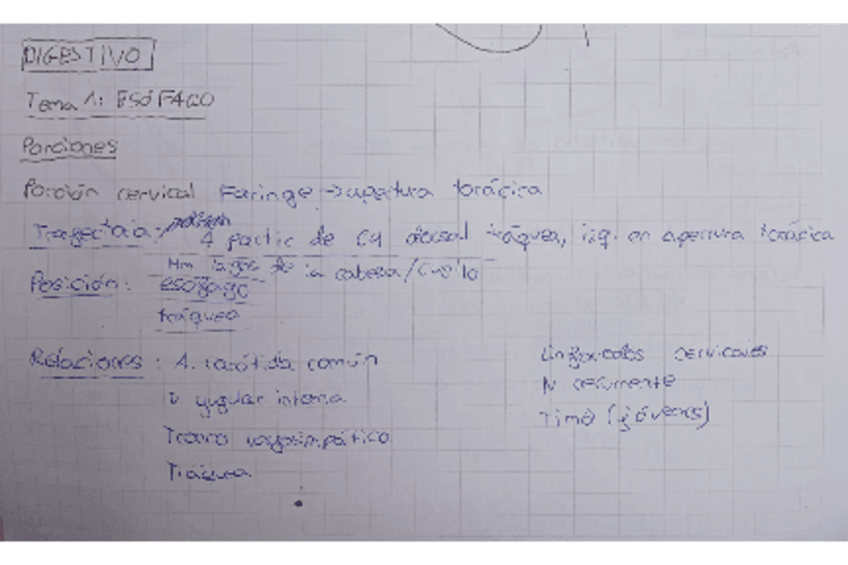 DIGESTIVO
Tema 1: ESÓFAGO
Porciones
Porción cervical Faringe → apertura torácica
Trayectoria: A partir de C4 dorsal tráquea, izq. en apertura torácica
Mm largos de la cabeza/cuello
Posición: esófago
tráquea
Relaciones: A. carótida común
V yugular interna
Tronco vagosimpático
Tráquea
Linfonodos cervicales
N recurrente
Timo (jóvenes)